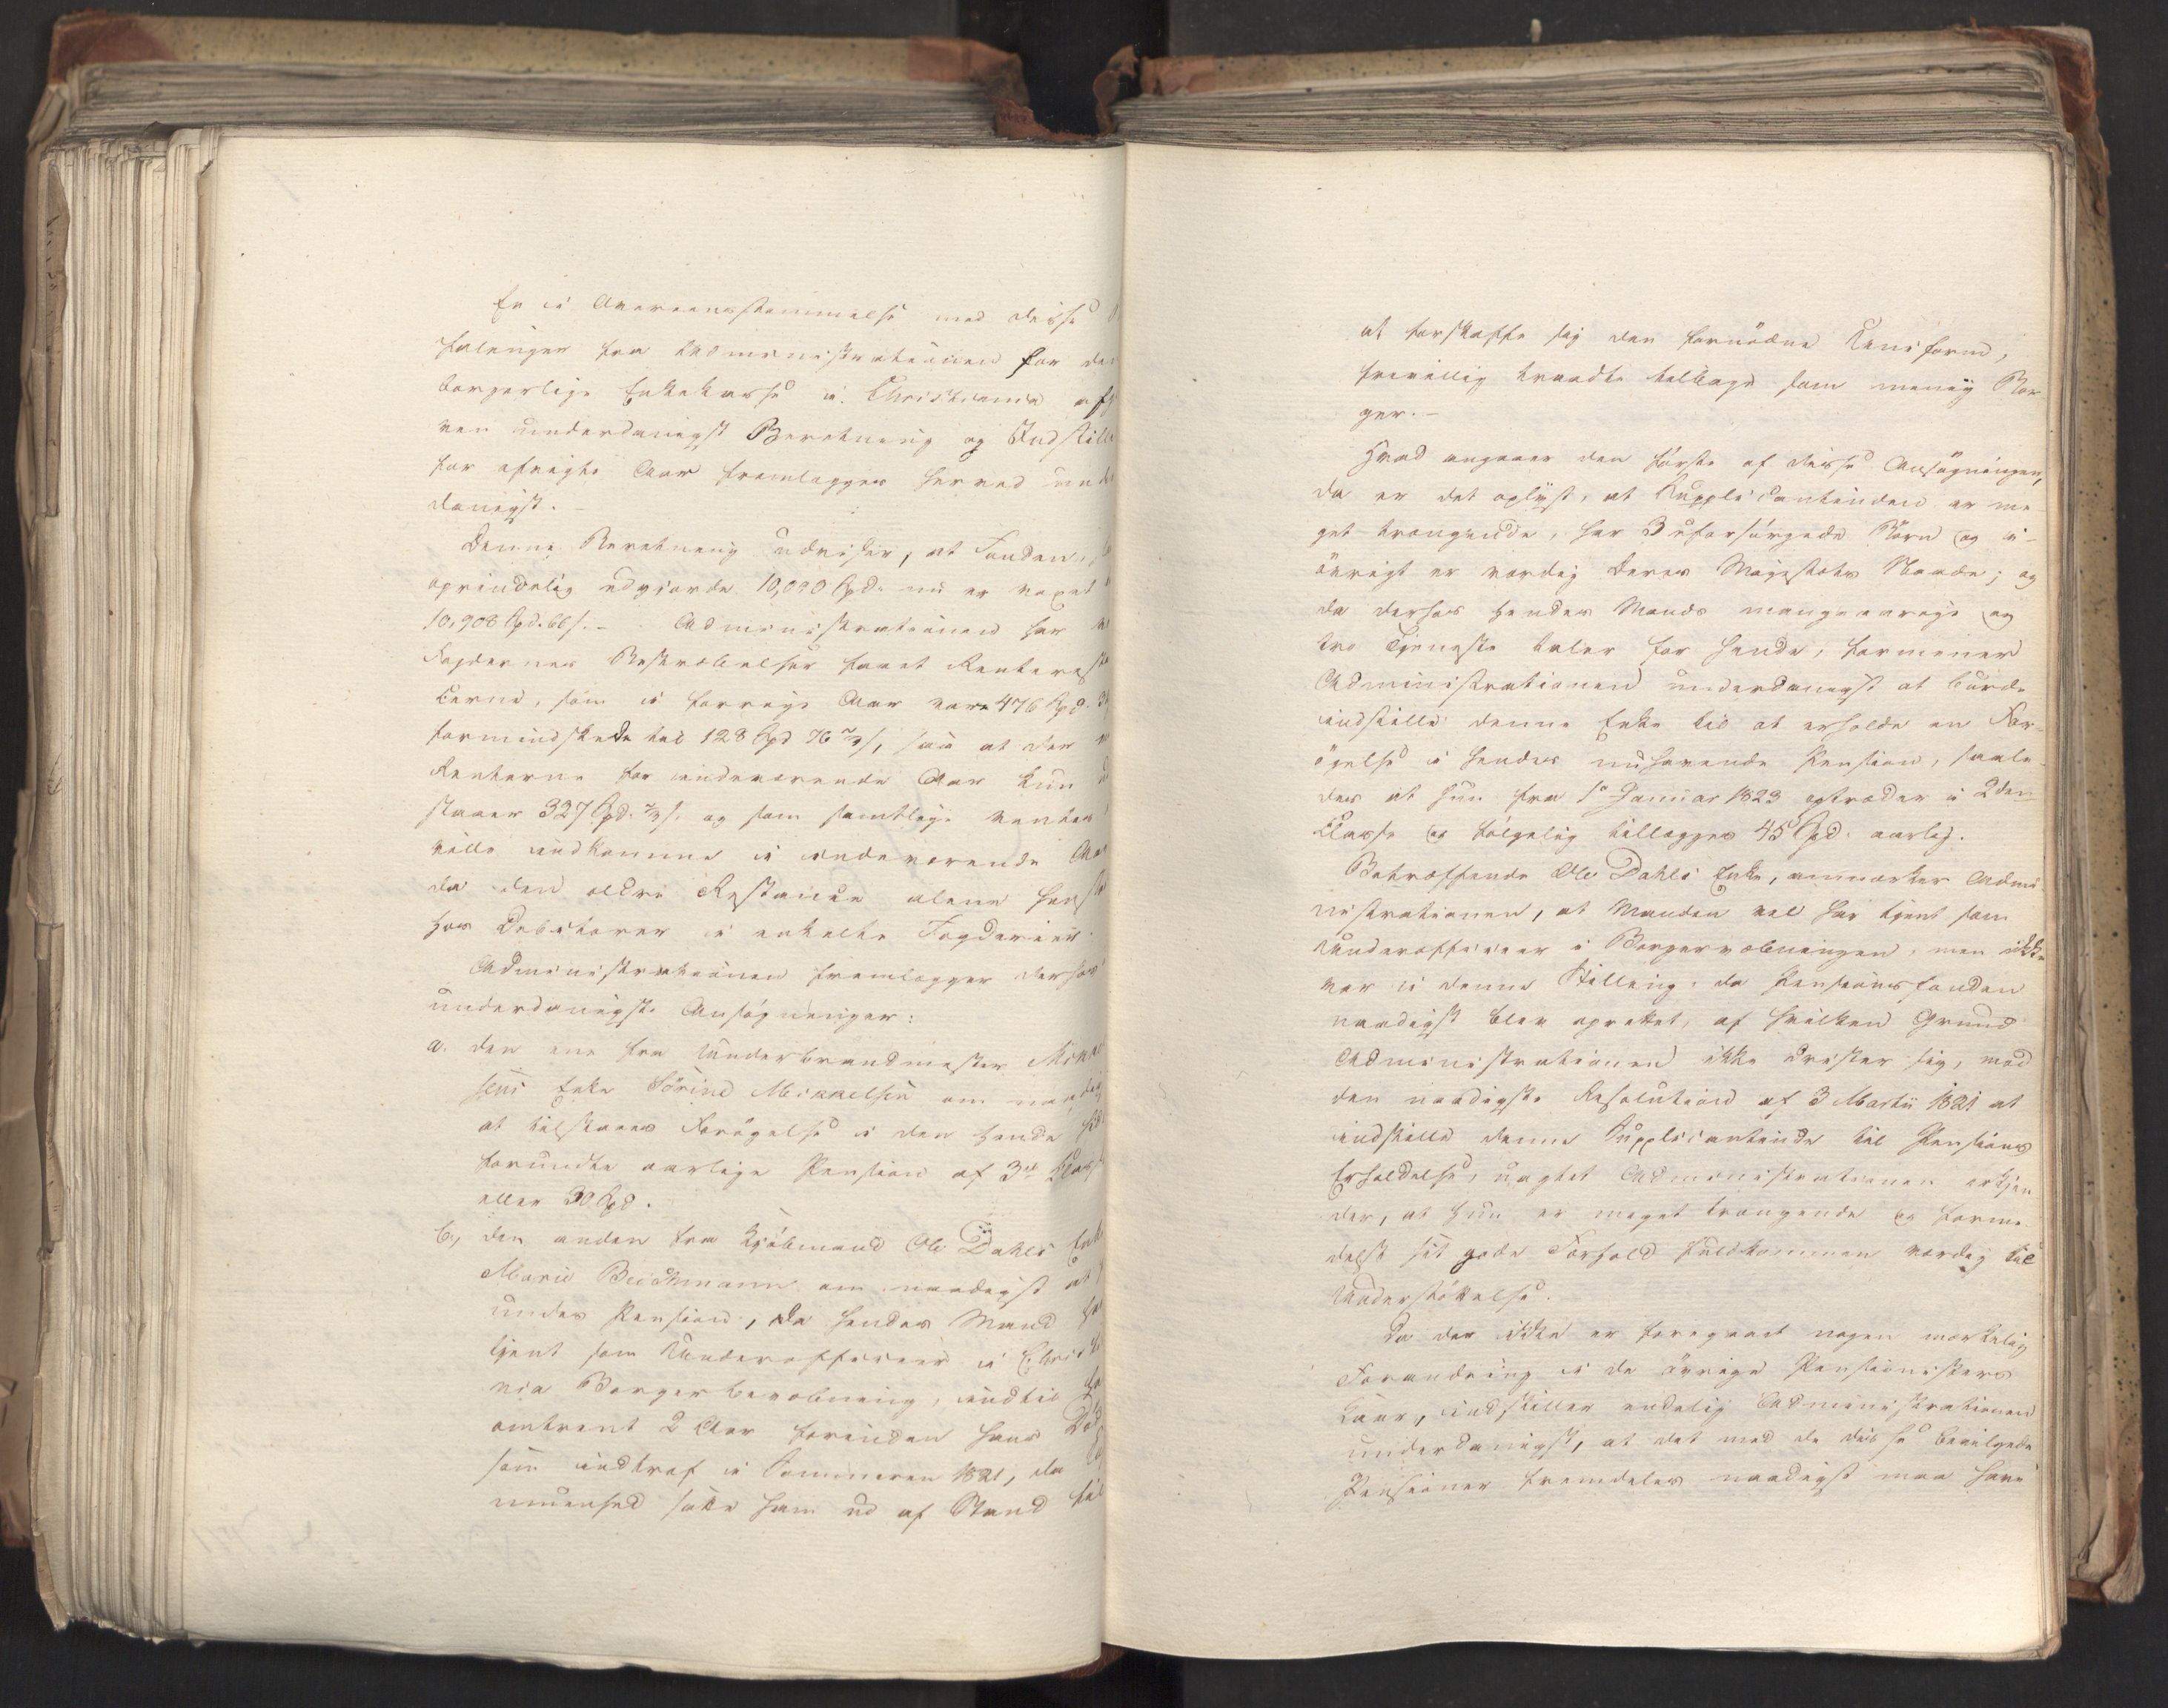 En i Overeensstemmelse med disse
falinger fra Administrationen for den
borgerlige Enkekasse i Christiania afgi
ven underdanigst Beretning og Indstill
for afvigte Aar fremlægges herved unde
danigst.
Denne Beretning udviser, at Fonden,
oprindelig udgjorde 10,000 Spd. nu er voxet
10,908 Spd. 66 s. – Administrationen har
Fogdernes Bestræbelser faaet Renteresta
cerne, som i forrige Aar vare 476 Spd.
formindskede til 128 Spd 76 2/3 s, saa at der
Renterne for indeværende Aar kun
staaer 327 Spd. 2/3 s. og som samtlige ventes
ville indkomme i indeværende Aar
da den ældre Restance alene hefte
hos Debitorer i enkelte Fogderier.
Administrationen fremlægger derhos
underdanigst Ansøgninger:
a. den ene fra Underbrandmester Mikkel
sens Enke Sørine Mikkelsen om naadigst
at tilstaaes Forøgelse i den hende hid
forundte aarlige Pension af 3die Classe
eller 30 Spd.
b, den anden fra Kjøbmand Ole Dahls Enke
Marie Beichmann om naadigst at
undes Pension, da hendes Mand har
tjent som Underofficeer i Christia
nia Borgerbevæbning, indtil han
omtrent 2 Aar forinden hans Død
som indtraf i Sommeren 1821, da
muenhed satte ham ud af Stand til
at forskaffe sig den fornødne Uniform,
frivillig traadte tilbage som menig Bor
ger. –
Hvad angaaer den første af disse Ansøgninger,
da er det oplyst, at Supplicantinden er me
get trængende, har 3 uforsørgede Børn og i-
øvrigt er værdig Deres Majestæts Naade; og
da derhos hendes Mands mangeaarige og
tro Tjeneste taler for hende, formener
Administrationen underdanigst at burde
indstille denne Enke til at erholde en For-
øgelse i hendes nuhavende Pension, saale-
des at hun fra 1ste Januar 1823 optræder i 2den
Classe og følgelig tillægges 45 Spd. aarlig.
Betræffende Ole Dahls Enke, anmærker Admi-
nistrationen, at Manden vel har tjent som
Underofficeer i Borgervæbningen, men ikke
var i denne Stilling, da Pensionsfonden
naadigst blev oprettet, af hvilken Grund
Administrationen ikke drister sig, mod
den naadigste Resolution af 3 Martii 1821 at
indstille denne Supplicantinde til Pensions
Erholdelse, uagtet Administrationen erkjen
der, at hun er meget trængende og forme-
delst sit gode Forhold fuldkommen værdig til
Understøttelse.
Da der ikke er foregaaet nogen mærkelig
Forandring i de øvrige Pensionisters
Kaar, indstiller endelig Administrationen
underdanigst, at det med de disse bevilgede
Pensioner fremdeles naadigst maa have